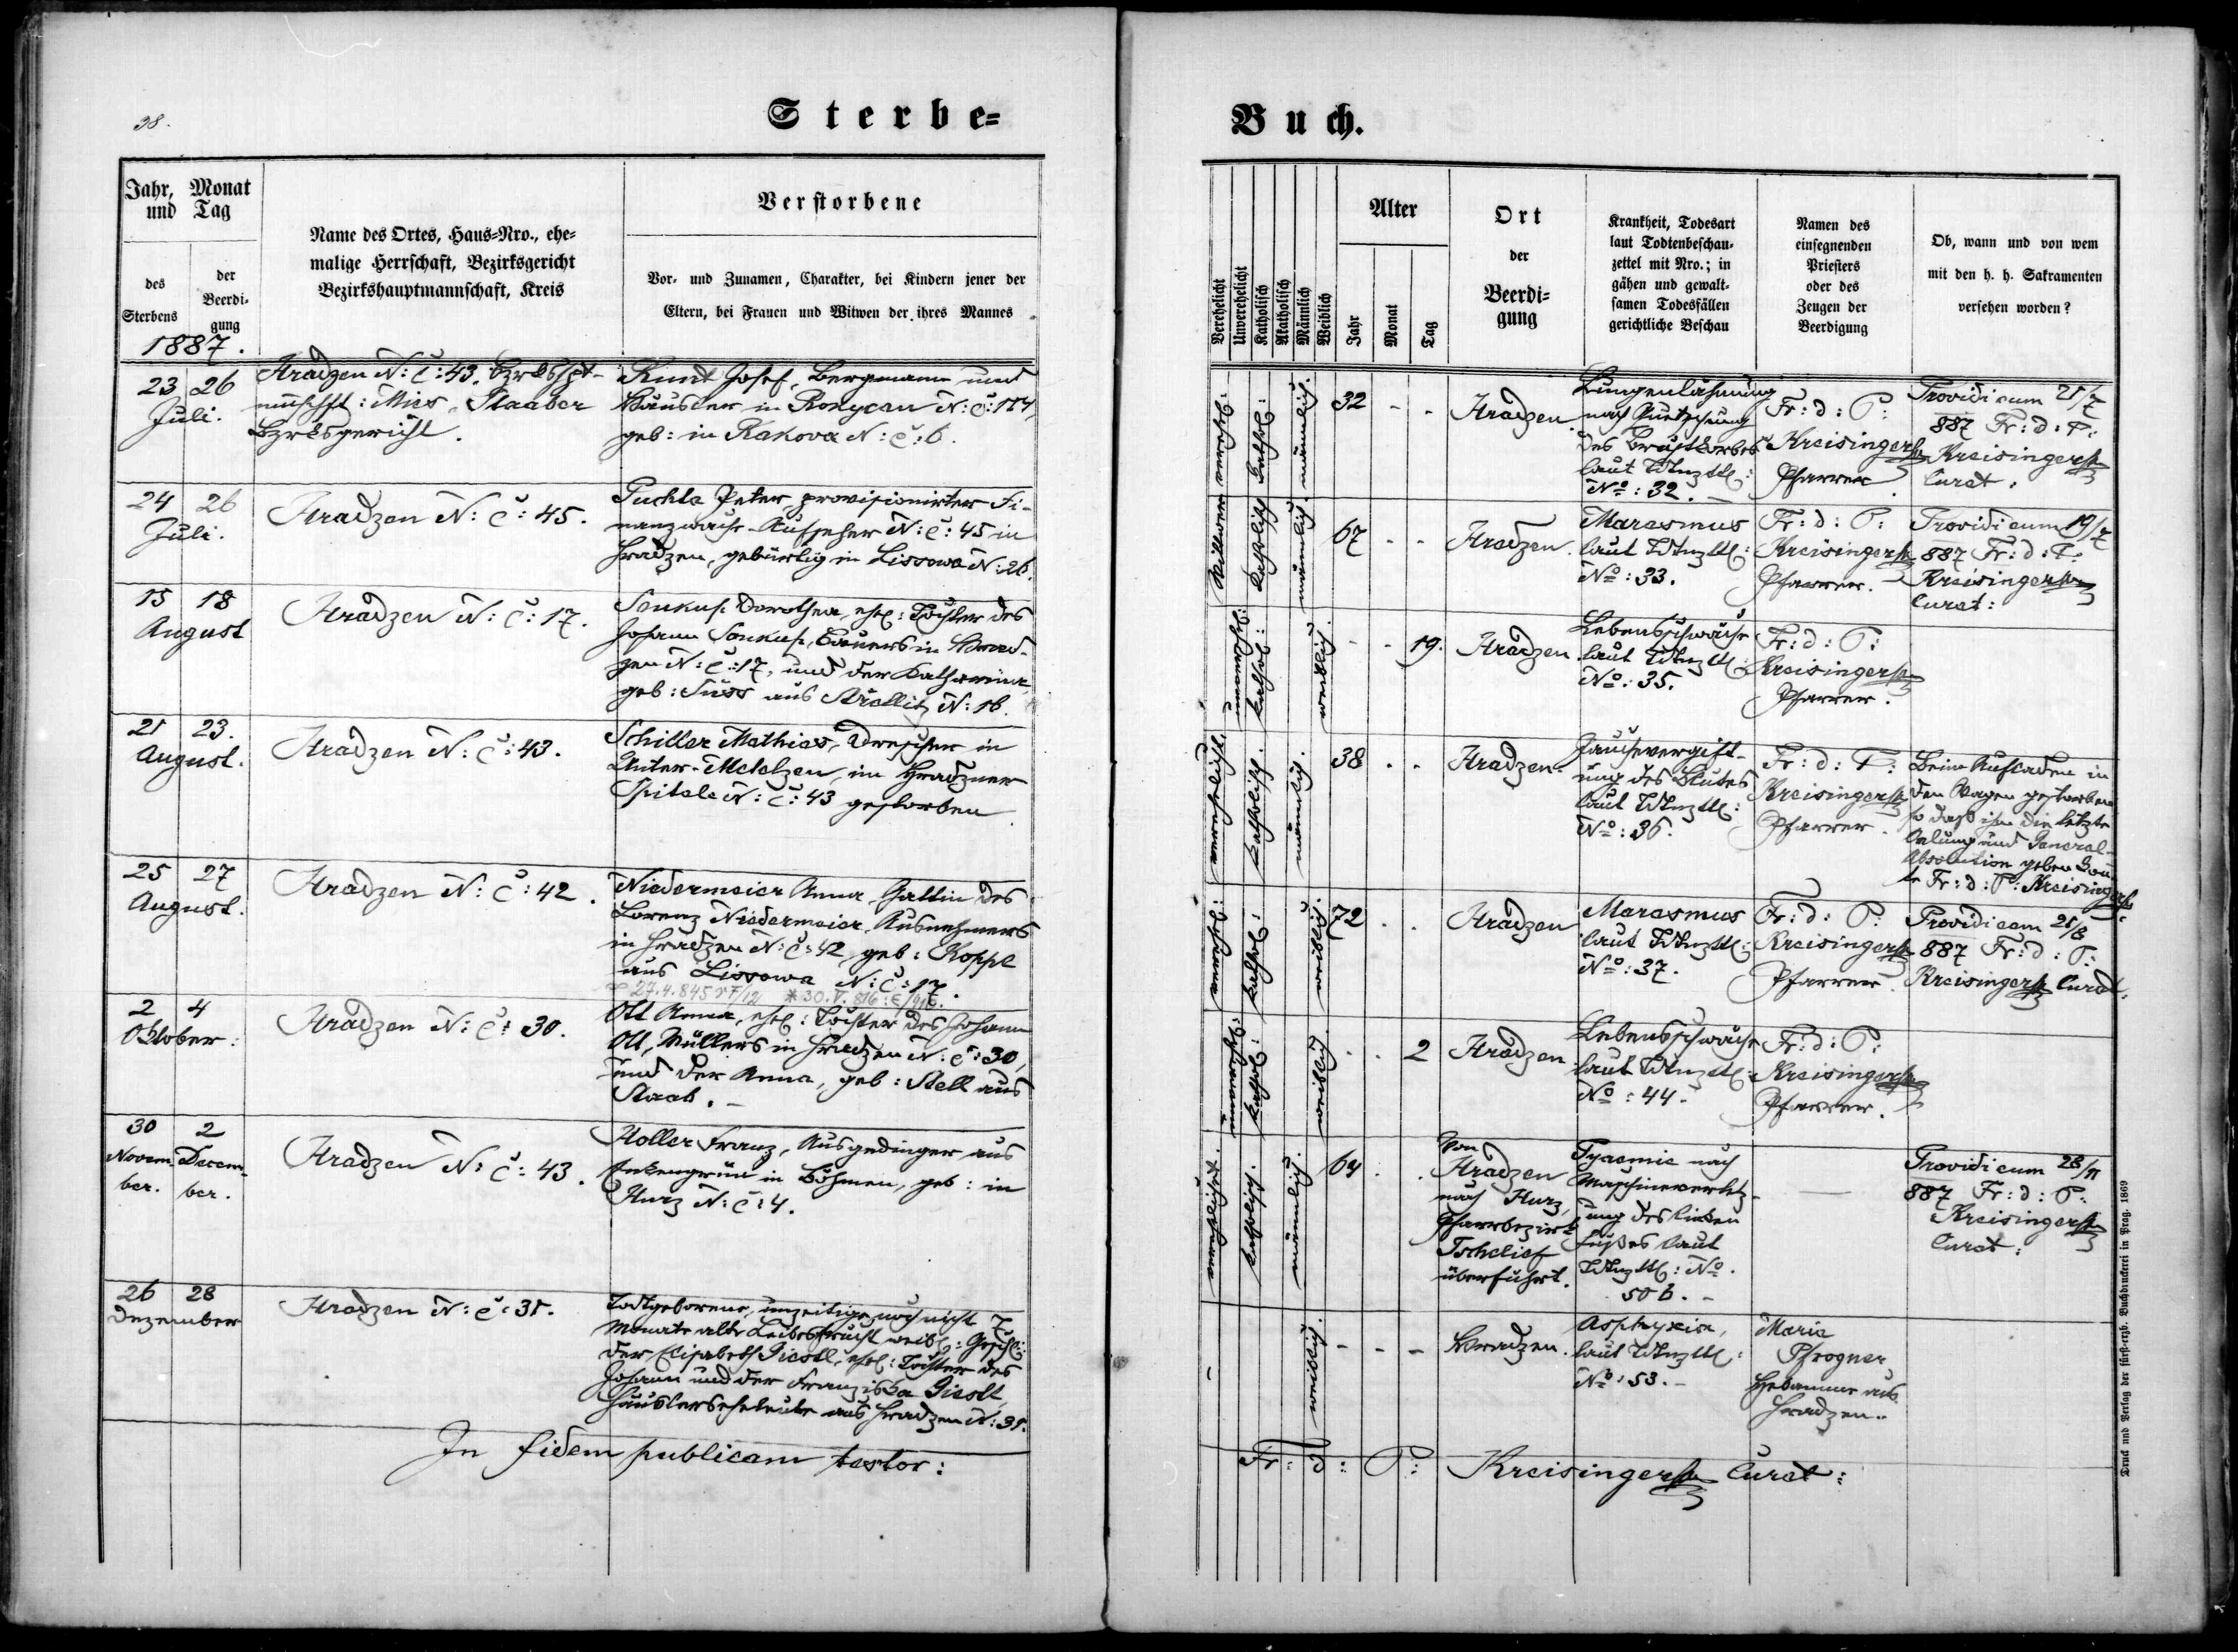 38.
Sterbe=
Jahr, Monat
und Tag
des
Sterbens
der
Beerdi-
gung
1887.
Name des Ortes, Haus=Nro., ehe=
malige Herrschaft, Bezirksgericht
Bezirkshauptmannschaft, Kreis
Verstorbene
Vor- und Zunamen, Charakter, bei Kindern jener der
Eltern, bei Frauen und Witwen der ihres Mannes
23 26
Juli.
Hradzen N: č: 43. Bzrkshpt-
mnschft: Mies, Staaber
Bzrksgericht.
Kunt Josef, Bergmann und
Häusler in Rokycan N: č: 174
geb: in Rakova N: č: 6.
24 26
Juli.
Hradzen N: č: 45.
Puchta Peter, provisionirter Fi-
nanzwach-Aufseher N: č: 45 in
Hradzen, gebürtig in Lissowa N: 26.
15 18
August
Hradzen N: č: 17.
Dorothea, ehel: Tochter des
Johann Bauers in Hrad-
zen N: č: 17, und der Katharina
geb: Süss aus N: 16.
21 23.
August.
Hradzen N: č: 43.
Schiller Mathias, Drescher in
Unter-Metelzen, im Hradzner
Spitale N: č: 43 gestorben
25 27
August.
Hradzen N: č: 42.
Niedermeier Anna, Gattin des
Lorenz Niedermeier, Ausnehmers
in Hradzen N: č: 42, geb: Koppl
aus Lissowa N: č: 17.
27.4.845 * 30.V.816:
2 4
Oktober:
Hradzen N: č: 30.
Ott Anna, ehel: Tochter des Johann
Ott, Müllers in Hradzen N: č: 30,
und der Anna, geb: Stell aus
Staab. –
30 2
Novem- Decem-
ber. ber.
Hradzen N: č: 43.
Holler Franz, Ausgedinger aus
in Böhmen, geb: in
Hurz N: č: 4.
26 28
Dezember
Hradzen N: č: 31.
Todtgeborene, unzeitige noch nicht 7
Monate alte Leibesfrucht weibl: Geschl:
der Elisabeth Giestl, ehel: Tochter des
Johann und der Franziska Giestl,
Häuslerseheleute aus Hradzen N: 31.
In fidem publicam testor:
Buch.
Verehelicht
Unverehelicht
Katholisch
Akatholisch
Männlich
Weiblich
Alter
Jahr
Monat
Tag
Ort
der
Beerdi=
gung
Krankheit, Todesart
laut Todtenbeschau-
zettel mit Nro.; in
gähen und gewalt-
samen Todesfällen
gerichtliche Beschau
Namen des
einsegnenden
Priesters
oder des
Zeugen der
Beerdigung
Ob, wann und von wem
mit den h. h. Sakramenten
versehen worden?
verehel:
kathol:
männlich.
32 - -
Hradzen.
Lungenlähmung
nach Quetschung
des Brustkorbes
laut Tdtnzttl:
No: 32. –
Fr: d: P:
Kreisinger
Pfarrer.
Providi eum 21/7
887 Fr: d: P:
Kreisinger
Curat.
Wittwer
katholisch
männlich.
67 - -
Hradzen.
Marasmus
laut Tdtnzttl:
No: 33.
Fr: d: P:
Kreisinger
Pfarrer.
Providi eum 19/7
887 Fr: d: P.
Kreisinger
Curat:
unverehel:
kathol:
weiblich.
- - 19.
Hradzen
Lebensschwäche
laut Tdtnzttl:
No: 35.
Fr: d: P:
Kreisinger
Pfarrer.
verehelicht.
katholisch.
männlich.
38 . .
Hradzen.
Jauchevergift-
ung des Blutes
laut Tdtnzttl:
No: 36.
Fr: d: P:
Kreisinger
Pfarrer.
Beim Aufladen in
den Wagen gestorben
so daß ihm die letzte
Oelung und General-
Absolution geben konn-
te Fr: d: P: Kreisinger
verehel:
kathol:
weiblich.
72 . .
Hradzen
Marasmus
laut Tdtnzttl:
No: 37.
Fr: d: P:
Kreisinger
Pfarrer.
Providi eam 21/8
887 Fr: d: P:
Kreisinger Curat.
unverehel:
kathol:
weiblich
. . 2
Hradzen
Lebensschwäche
laut Tdtnzttl:
No: 44.
Fr: d: P:
Kreisinger
Pfarrer.
verehelicht.
katholisch.
männlich.
64 . .
Von
Hradzen
nach Hurz,
Pfarrbezirk
Tschelief
überführt.
Pyaemie nach
Maschineverletz-
ung des linken
Fußes laut
Tdtnzttl: No.
50 b. –
Providi eum 28/11
887 Fr: d: P:
Kreisinger
Curat:
-
weiblich.
- - -
Hradzen.
Asphyxia,
laut Tdtnzttl:
No: 53. –
Maria
Pfrogner
Hebamme aus
Hradzen.
Fr: d: P: Kreisinger Curat:
Druck und Verlag der fürst-erzb. Buchdruckerei in Prag. 1869